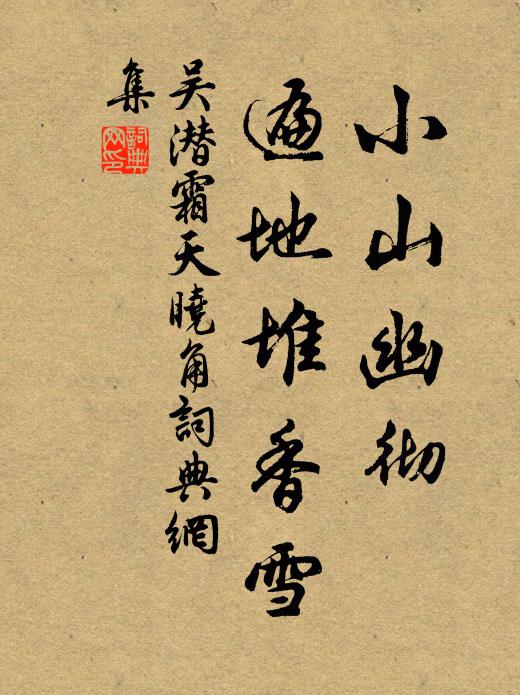 小山幽彻
遍地堆香雪
吴潜霜天曉角詞典網
集
詞典
网印